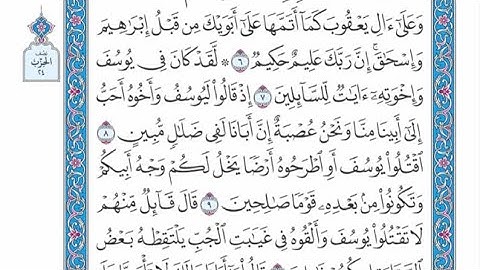 وَعَلَىٰٓ ءَالِ يَعْقُوبَ كَمَآ أَتَمَّهَا عَلَىٰٓ أَبَوَيْكَ مِن قَبْلُ إِبْرَٰهِيمَ
وَإِسْحَٰقَۚ إِنَّ رَبَّكَ عَلِيمٌ حَكِيمٌ ٦ ۞ لَّقَدْ كَانَ فِى يُوسُفَ
وَإِخْوَتِهِۦٓ ءَايَٰتٌ لِّلسَّآئِلِينَ ٧ إِذْ قَالُوا۟ لَيُوسُفُ وَأَخُوهُ أَحَبُّ
إِلَىٰٓ أَبِينَا مِنَّا وَنَحْنُ عُصْبَةٌ إِنَّ أَبَانَا لَفِى ضَلَٰلٍ مُّبِينٍ ٨
ٱقْتُلُوا۟ يُوسُفَ أَوِ ٱطْرَحُوهُ أَرْضًا يَخْلُ لَكُمْ وَجْهُ أَبِيكُمْ
وَتَكُونُوا۟ مِنۢ بَعْدِهِۦ قَوْمًا صَٰلِحِينَ ٩ قَالَ قَآئِلٌ مِّنْهُمْ
لَا تَقْتُلُوا۟ يُوسُفَ وَأَلْقُوهُ فِى غَيَٰبَتِ ٱلْجُبِّ يَلْتَقِطْهُ بَعْضُ
نصف
الحزب
٢٤